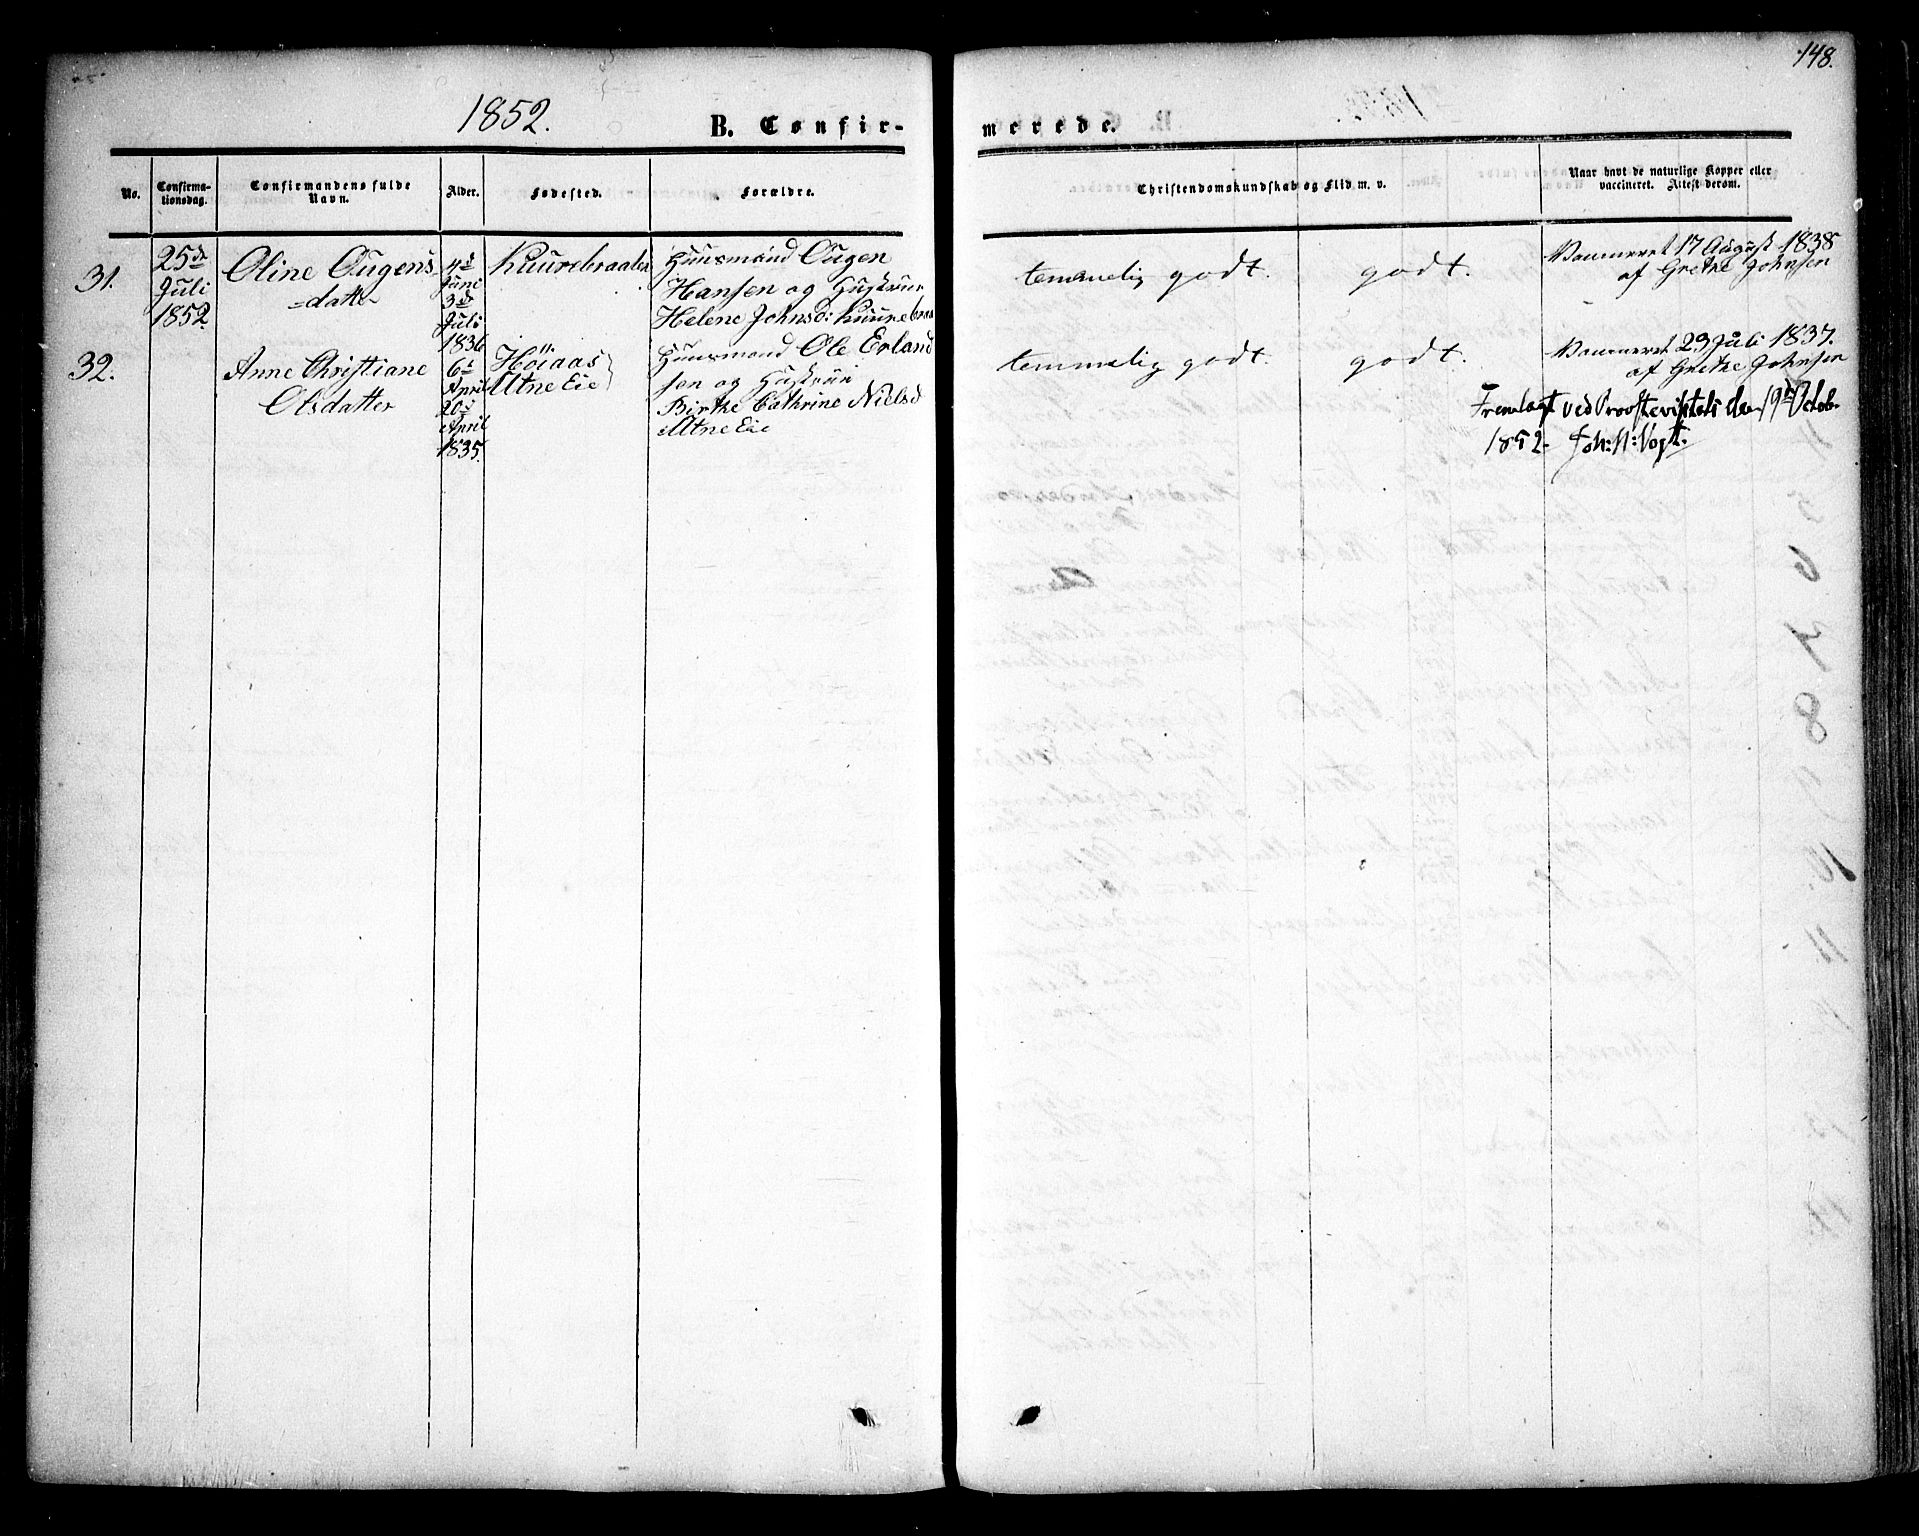 148.
1852.
B. Confir-
merede.
No.
Confirma-
tionsdag.
Confirmandens fulde
Navn.
Alder.
Fødested.
Forældre.
Christendomskundskab og Flid m. v.
Naar havt de naturlige Kopper eller
vaccineret. Attest derom.
31.
25de
Juli
1852.
Oline Ougens
=datter
4de
Juni
3die
Juli
1836
Kuurebraaten
Huusmand Ougen
Hansen og Hustrue
Helene Johnsd: Kuurebraa
temmelig godt.
godt.
Vaccineret 17 August 1838
af Grethe Johnsen
32.
Anne Christiane
Olsdatter
6te
April
20de
April
1835.
Höiaas
Utne Eie
Huusmand Ole Erland
sen og Hustrue
Birthe Cathrine Nielsd
Utne Eie
temmelig godt.
godt.
Vaccineret 29 Juli 1837.
af Grethe Johnsen
Fremlagt ved Provstevisitats den 19de Octob.
1852. Joh: N: Vogt.